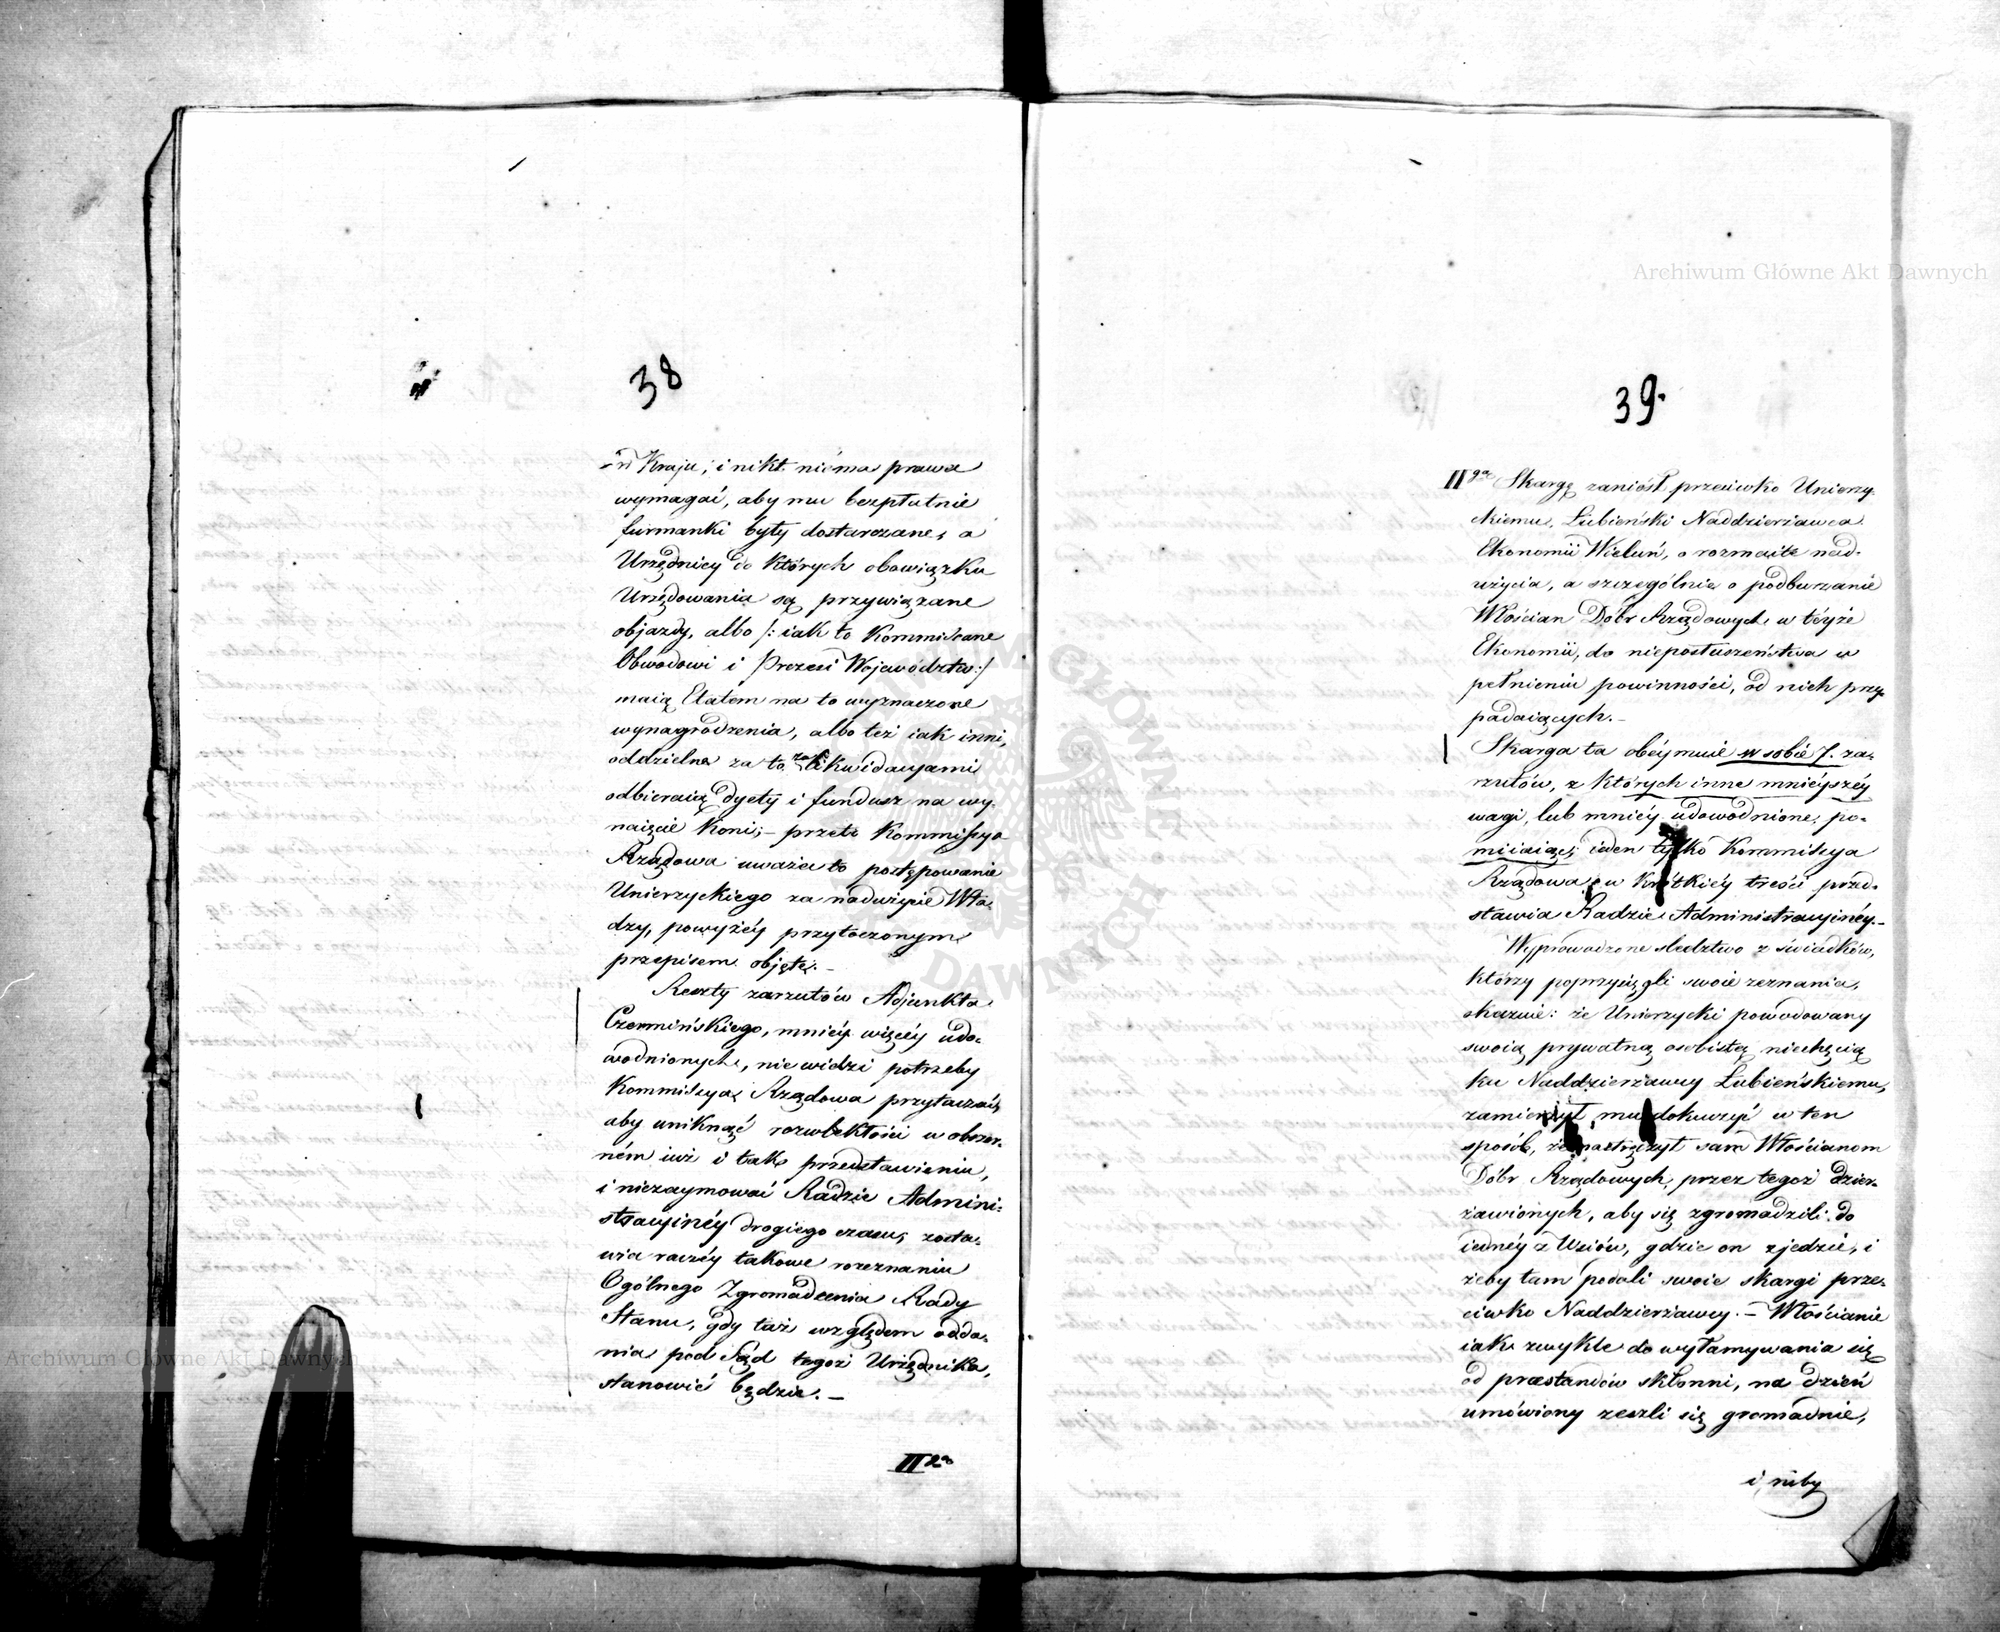 38
w Kraju; i nikt niéma prawa
wymagać, aby mu bezpłatnie
furmanki były dostarczane, a
Urzędnicy do których obowiązku
Urzędowania są przywiązane
objazdy, albo /: iak to Kommissarze
Obwodowi i Prezesi Województw :/
maią Etatem na to wyznaczone
wynagrodzenia, albo też iak inni,
oddzielne za to za likwidacyami
odbieraią dyety i fundusz na wy-
naięcie Koni; – przeto Kommissya
Rządowa uważa to postępowanie
Unierzyckiego za nadużycie Wła-
dzy, powyżéy przytoczonym
przepisem objęte. –
Reszty zarzutów Adjunkta
Czermińskiego, mniéy więcéy udo-
wodnionych, nie widzi potrzeby
Kommissya Rządowa przytaczać,
aby uniknąć rozwlekłości w obszer-
ném iuż i tak przedstawieniu,
i niezaymować Radzie Admini-
stracyinéy drogiego czasu, zosta-
wia raczéy takowe rozeznaniu
Ogólnego Zgromadzenia Rady
Stanu, gdy taż względem odda-
nia pod Sąd tegoż Urzędnika,
stanowić będzie. –
II
39.
II Skargę zaniósł przeciwko Unierzy-
ckiemu, Łubieński Naddzierżawca
Ekonomii Wieluń, o rozmaite nad-
użycia, a szczególnie o podburzanie
Włościan Dóbr Rządowych w téyże
Ekonomii, do nieposłuszeństwa w
pełnieniu powinności, od nich przy-
padaiących. –
Skarga ta obéymuie w sobie 7. za-
rzutów, z których inne mniéyszéy
wagi, lub mniéy udowodnione, po-
miiaiąc; ieden tylko Kommissya
Rządowa w krótkiéy treści przed-
stawia Radzie Administracyinéy. –
Wyprowadzone sledztwo z świadków,
którzy poprzysięgli swoie zeznania,
okazuie: że Unierzycki powodowany
swoią prywatną osobistą niechęcią
ku Naddzierżawcy Łubieńskiemu,
zamierzył mu dokuczyć w ten
sposób, że nastręczył sam Włościanom
Dóbr Rządowych, przez tegoż dzier-
żawionych, aby się zgromadzili do
iednéy z Wsiów, gdzie on zjedzie, i
żeby tam podali swoie skargi prze-
ciwko Naddzierżawcy. – Włościanie
iak zwykle do wyłamywania się
od praestandów skłonni, na dzień
umówiony zeszli się gromadnie,
i niby
Archiwum Główne Akt Dawnych
Archiwum Główne Akt Dawnych